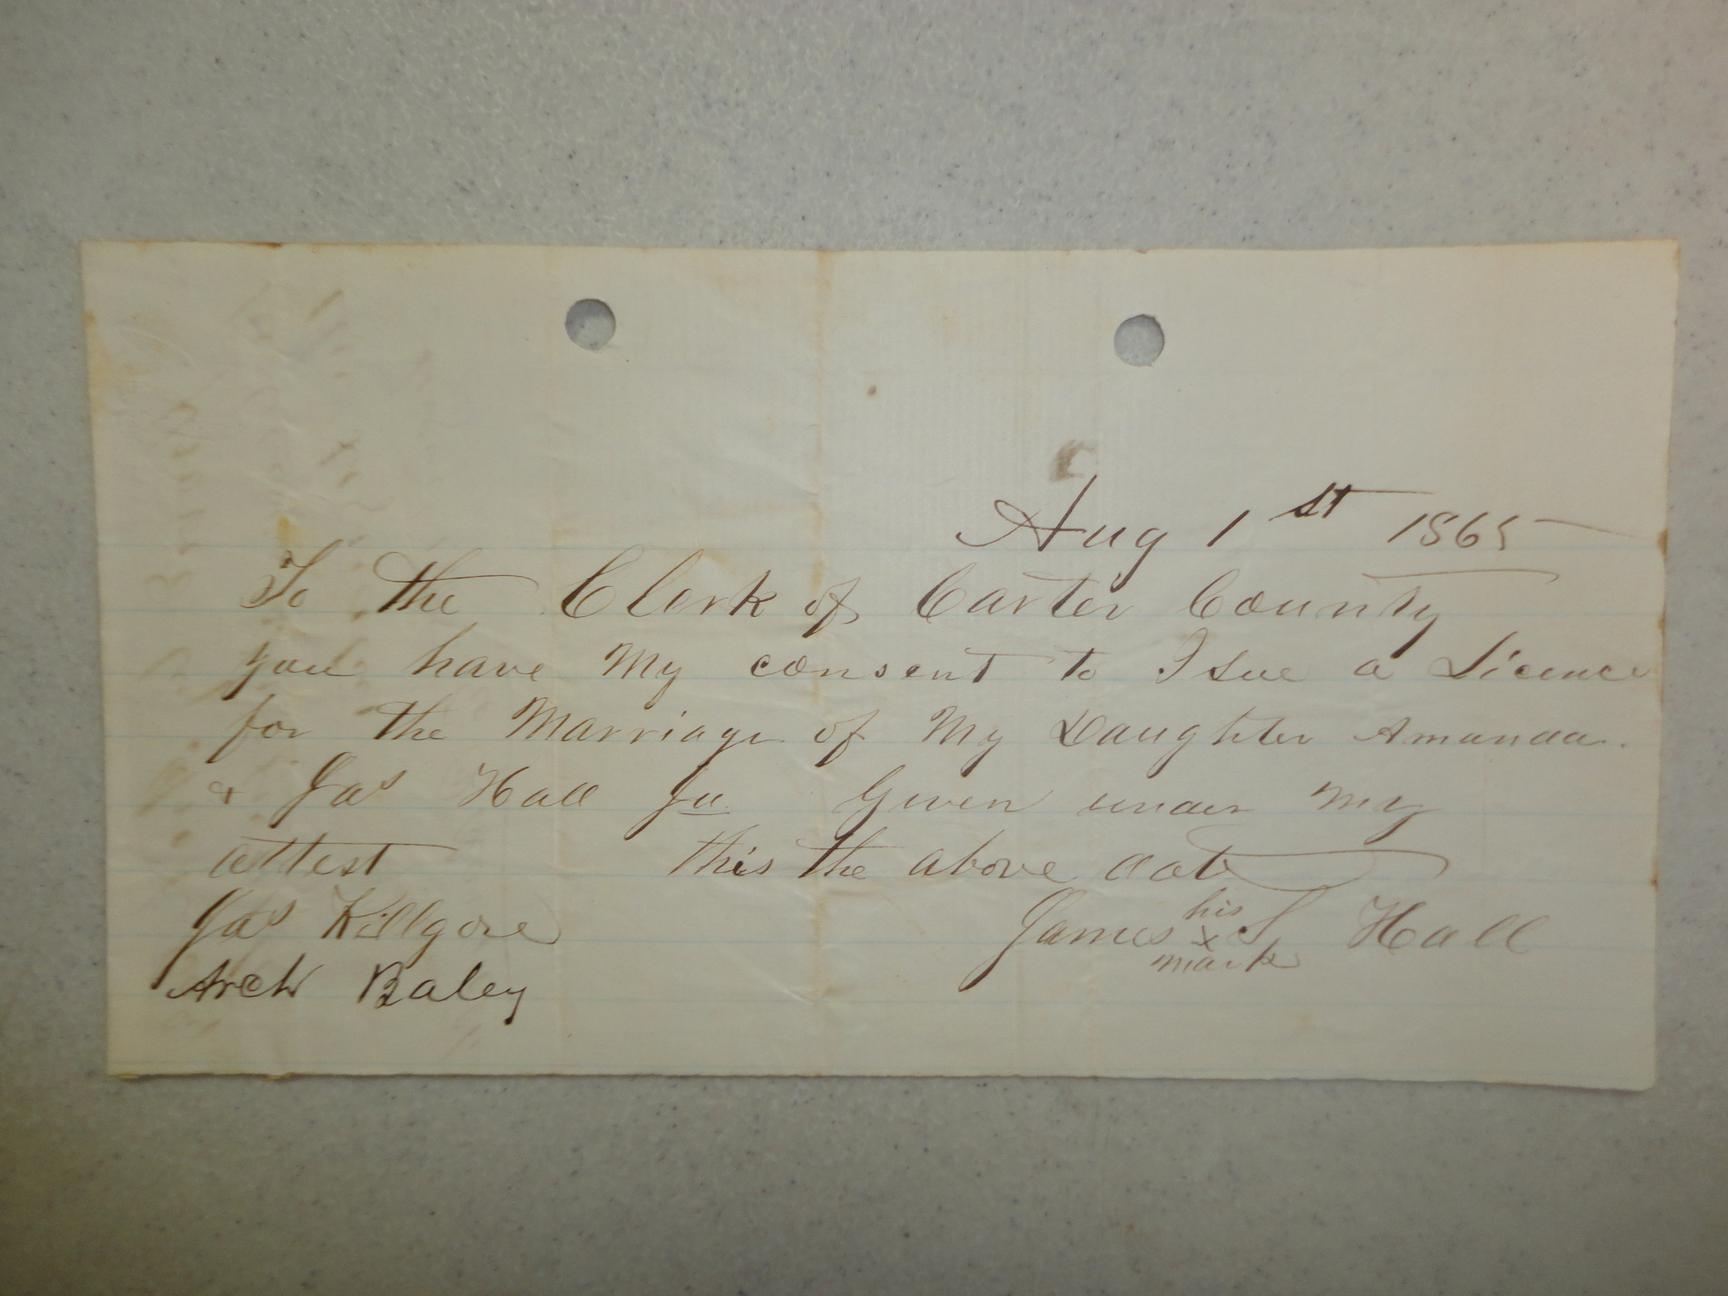 Aug 1st 1865
To the Clerk of Carter County
you have My consent to Isue a Licence
for the Marriage of My Daughter Amanda
& Jas Hall Ju Given under My
attest this the above date
Jas Killgore James his x mark S Hall
Arch Baley